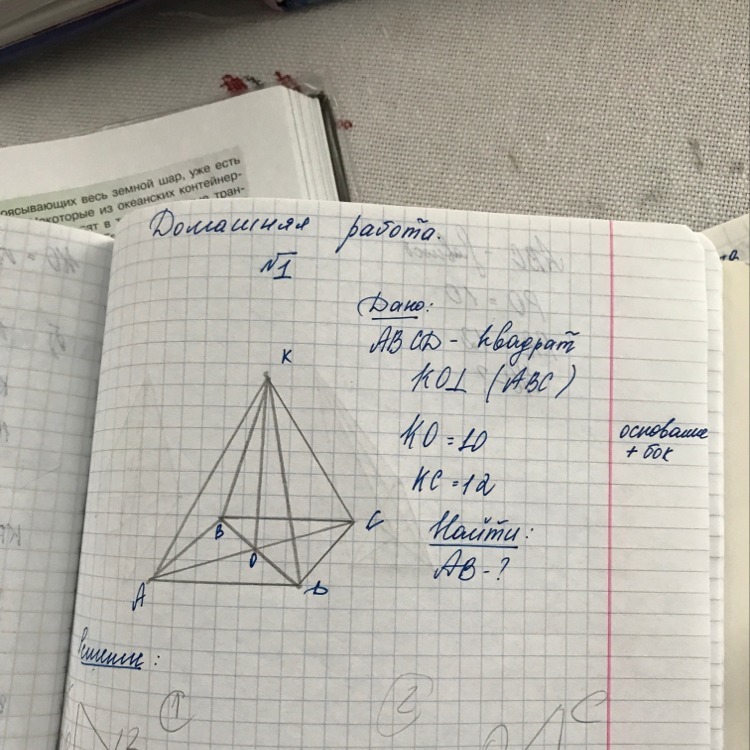 оясывающих весь земной шар, уже есть
которые из океанских контейнер-
тран-
Домашняя работа.
№1
Дано:
ABCD - квадрат
KO⊥ (ABC)
KO = 10
KC = 12
Найти:
AB - ?
основание
+ бок
K
B
C
O
A
D
Решение:
1
2
12
C